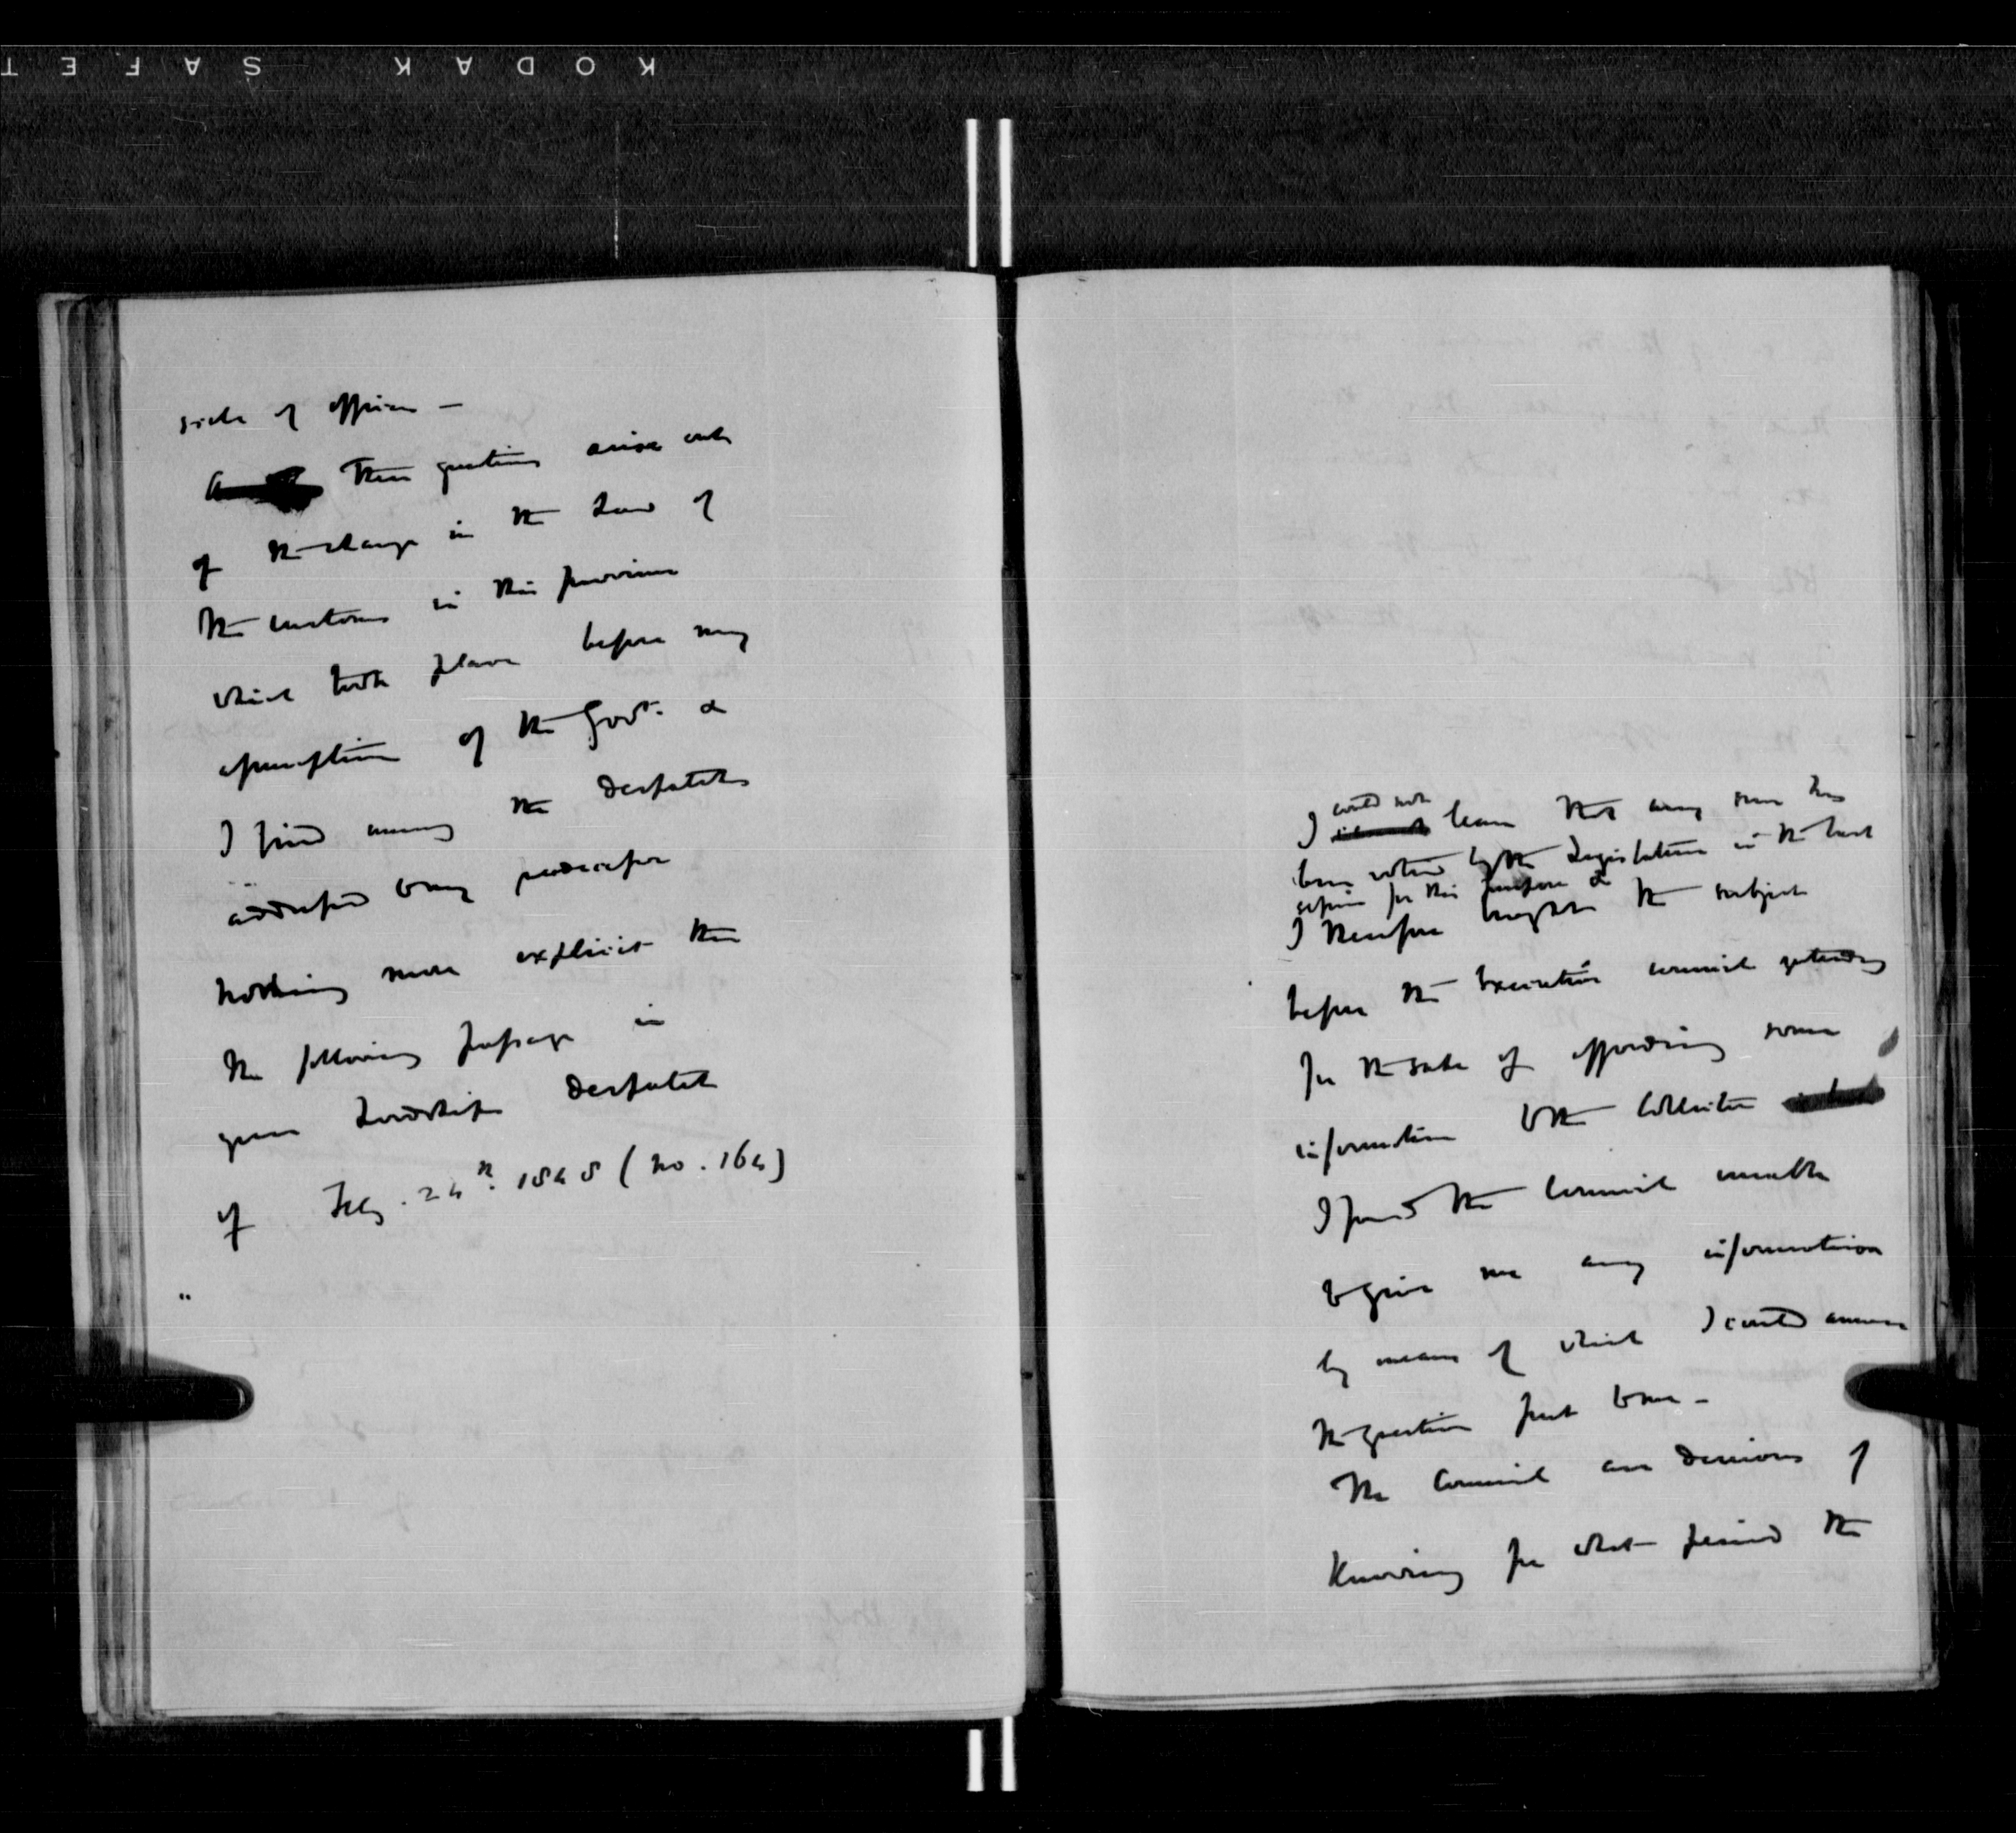 KODAK SAFET
side of affairs –
These questions arise out
of the change in the Law of
the customs in this province
which took place before my
assumption of the Govt. &
I find among the despatches
addressed to my predecessor
nothing more explicit than
the following passage in
your Lordship's despatch
of Feby. 24th. 1845 (No. 164)
"
could not
I learn that any sum has
been voted by the Legislature in the last
session for this purpose &
I therefore brought the subject
before the Executive council yesterday
for the sake of affording some
information to the Collector
I found the Council unable
to give me any information
by means of which I could answer
the question put to me –
The Council are desirous of
Knowing for what period the